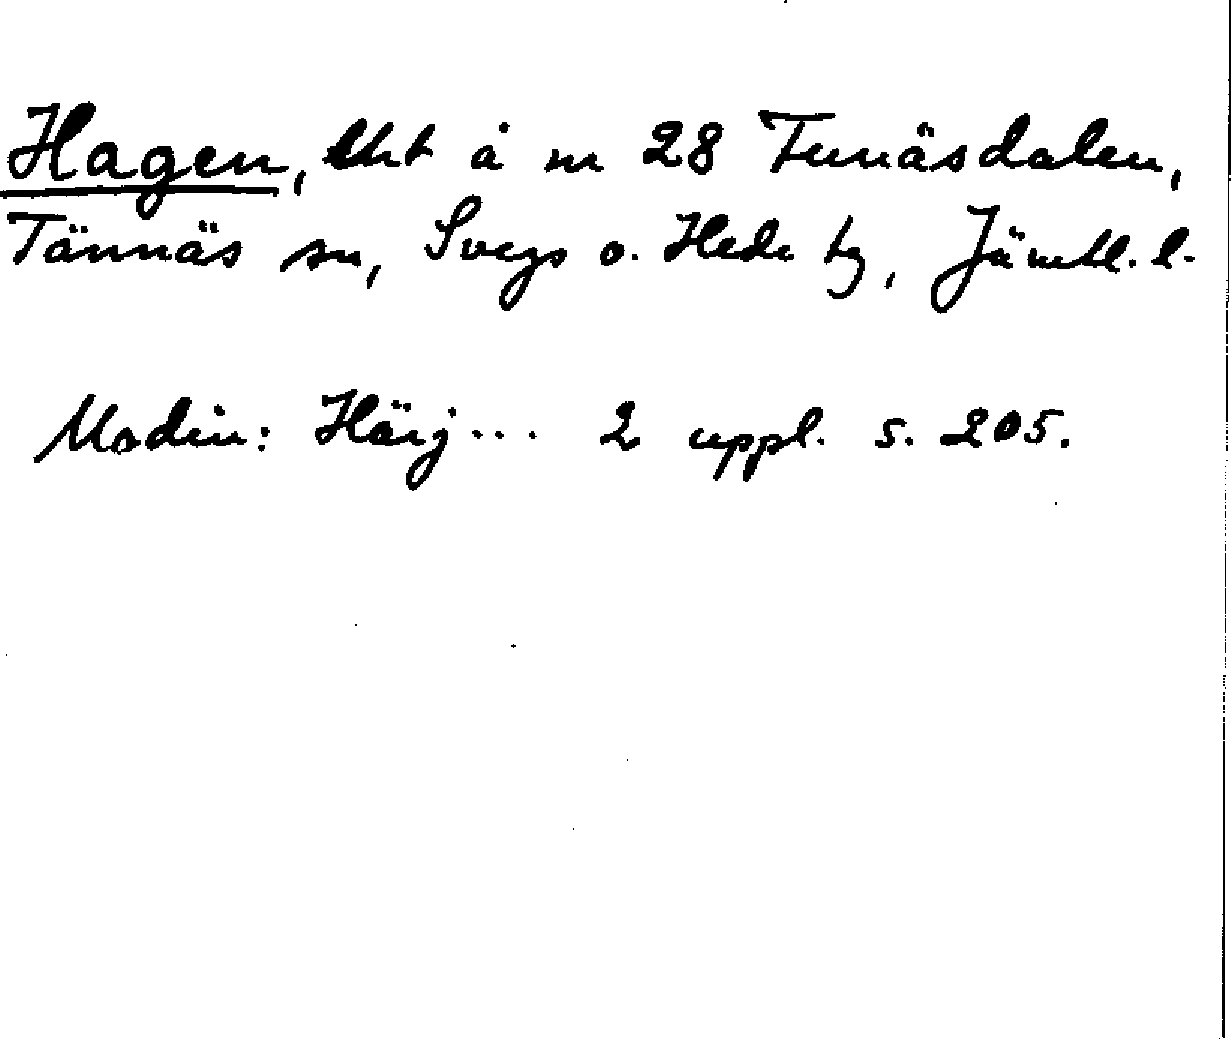 Hagen, lht å nr 28 Funäsdalen,
Tännäs sn, Svegs o. Hede tg, Jämtl. l.
Modin: Härj... 2 uppl. s. 205.